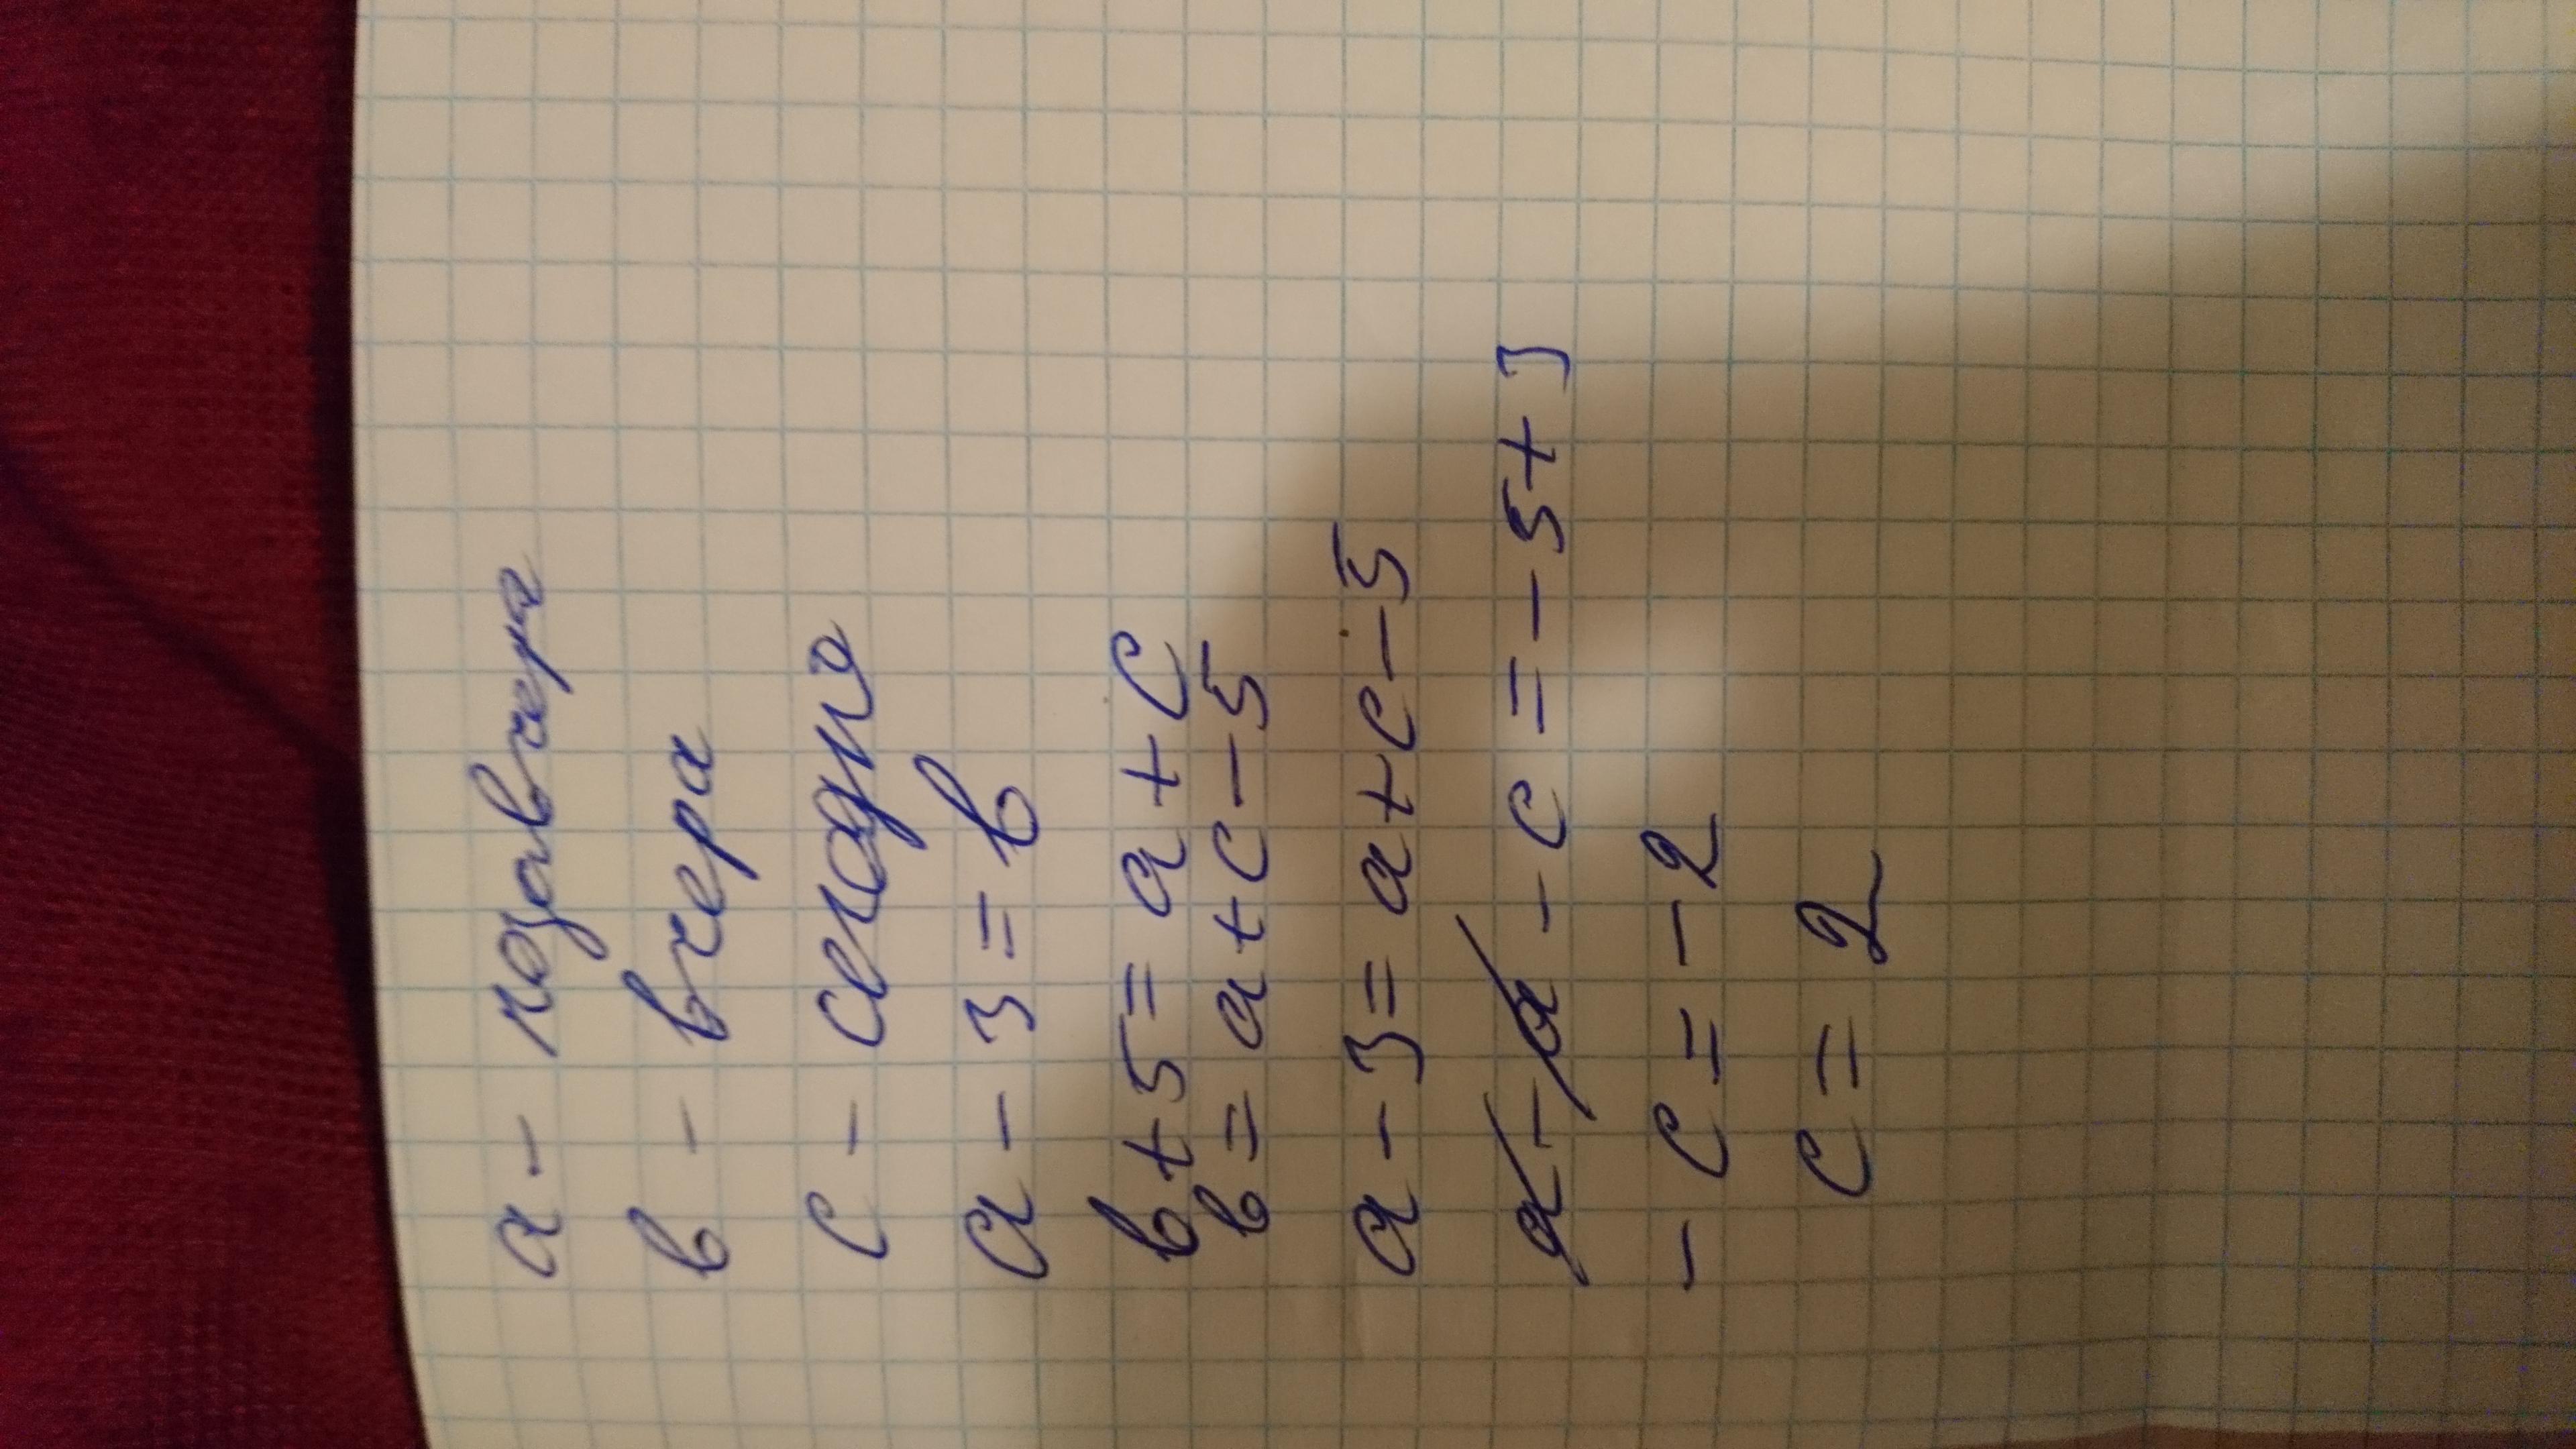 а - позавчера
в - вчера
с - сегодня
а - 3 = в
в + 5 = а + с
в = а + с - 5
а - 3 = а + с - 5
а - а - с = - 5 + 3
- с = - 2
с = 2